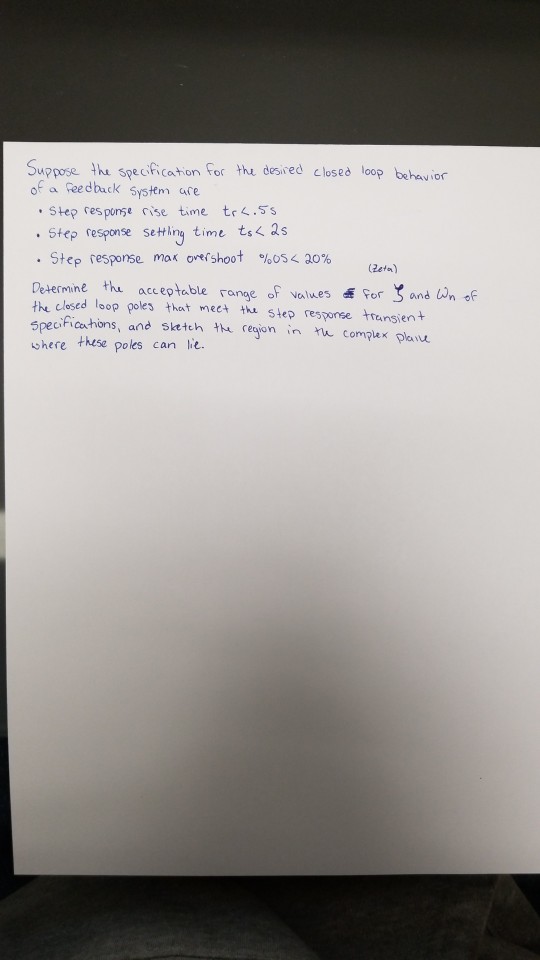 Suppose the specification for the desired closed loop behavior
of a feedback system are
• Step response rise time tr<.5s
• Step response settling time ts< 2s
• Step response max overshoot %OS< 20%
(Zeta)
Determine the acceptable range of values for ζ and ωn of
the closed loop poles that meet the step response transient
specifications, and sketch the region in the complex plane
where these poles can lie.